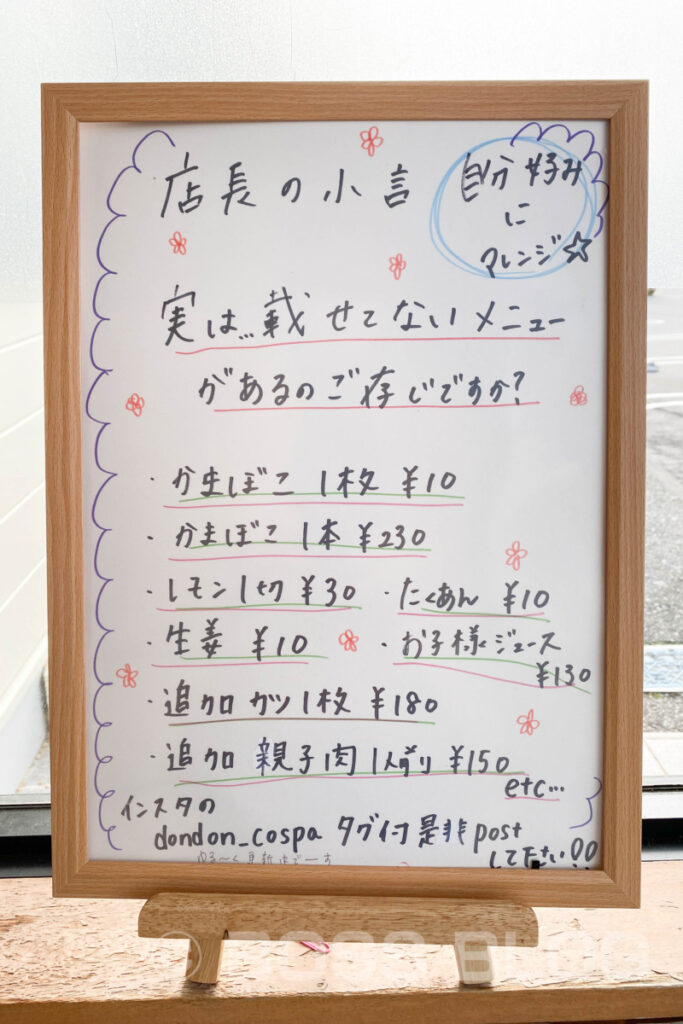 店長の小言
自分好み
に
アレンジ☆
実は…載せてないメニュー
があるのご存じですか?
・かまぼこ 1枚 ¥10
・かまぼこ 1本 ¥230
・レモン1切 ¥30
・たくあん ¥10
・生姜 ¥10
・お子様ジュース
¥130
・追加カツ1枚 ¥180
・追加 親子肉1人前 ¥150
etc…
インスタの
dondon_cospa タグ付 是非post
して下さい!!
ゆる〜く更新中でーす
BOSS BLOG